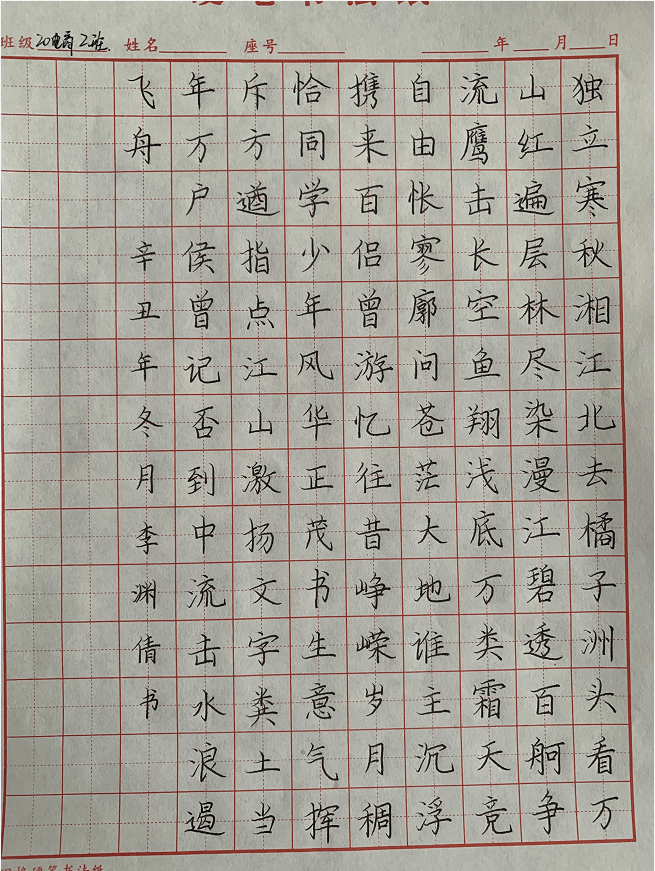 班级20电商2班 姓名 座号 年 月 日
独立寒秋湘江北去橘子洲头看万
山红遍层林尽染漫江碧透百舸争
流鹰击长空鱼翔浅底万类霜天竞
自由怅寥廓问苍茫大地谁主沉浮
携来百侣曾游忆往昔峥嵘岁月稠
恰同学少年风华正茂书生意气挥
斥方遒指点江山激扬文字粪土当
年万户侯曾记否到中流击水浪遏
飞舟 辛丑年冬月李渊倩书